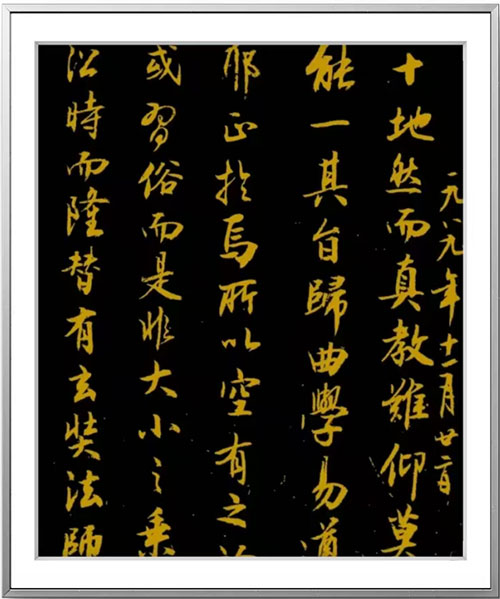 一九八九年十一月廿二日
十地然而真教難仰莫
能一其旨歸曲學易遵
邪正於焉所以空有之
或習俗而是非大小之乘
沿時而隆替有玄奘法師